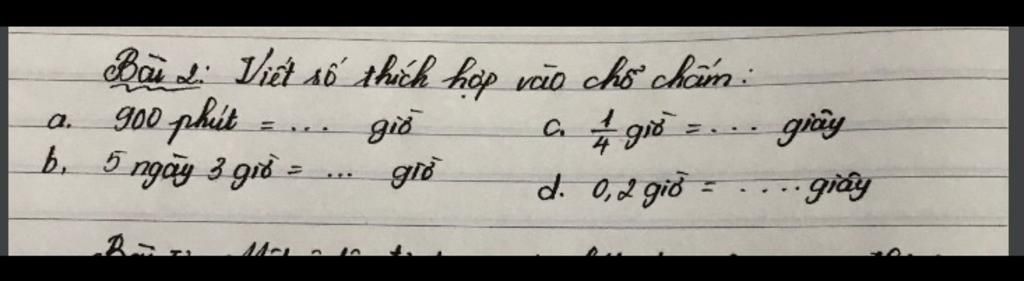 Bài 2: Viết số thích hợp vào chỗ chấm:
a. 900 phút = ... giờ
c. 1/4 giờ = ... giây
b. 5 ngày 3 giờ = ... giờ
d. 0,2 giờ = .... giây
Bài